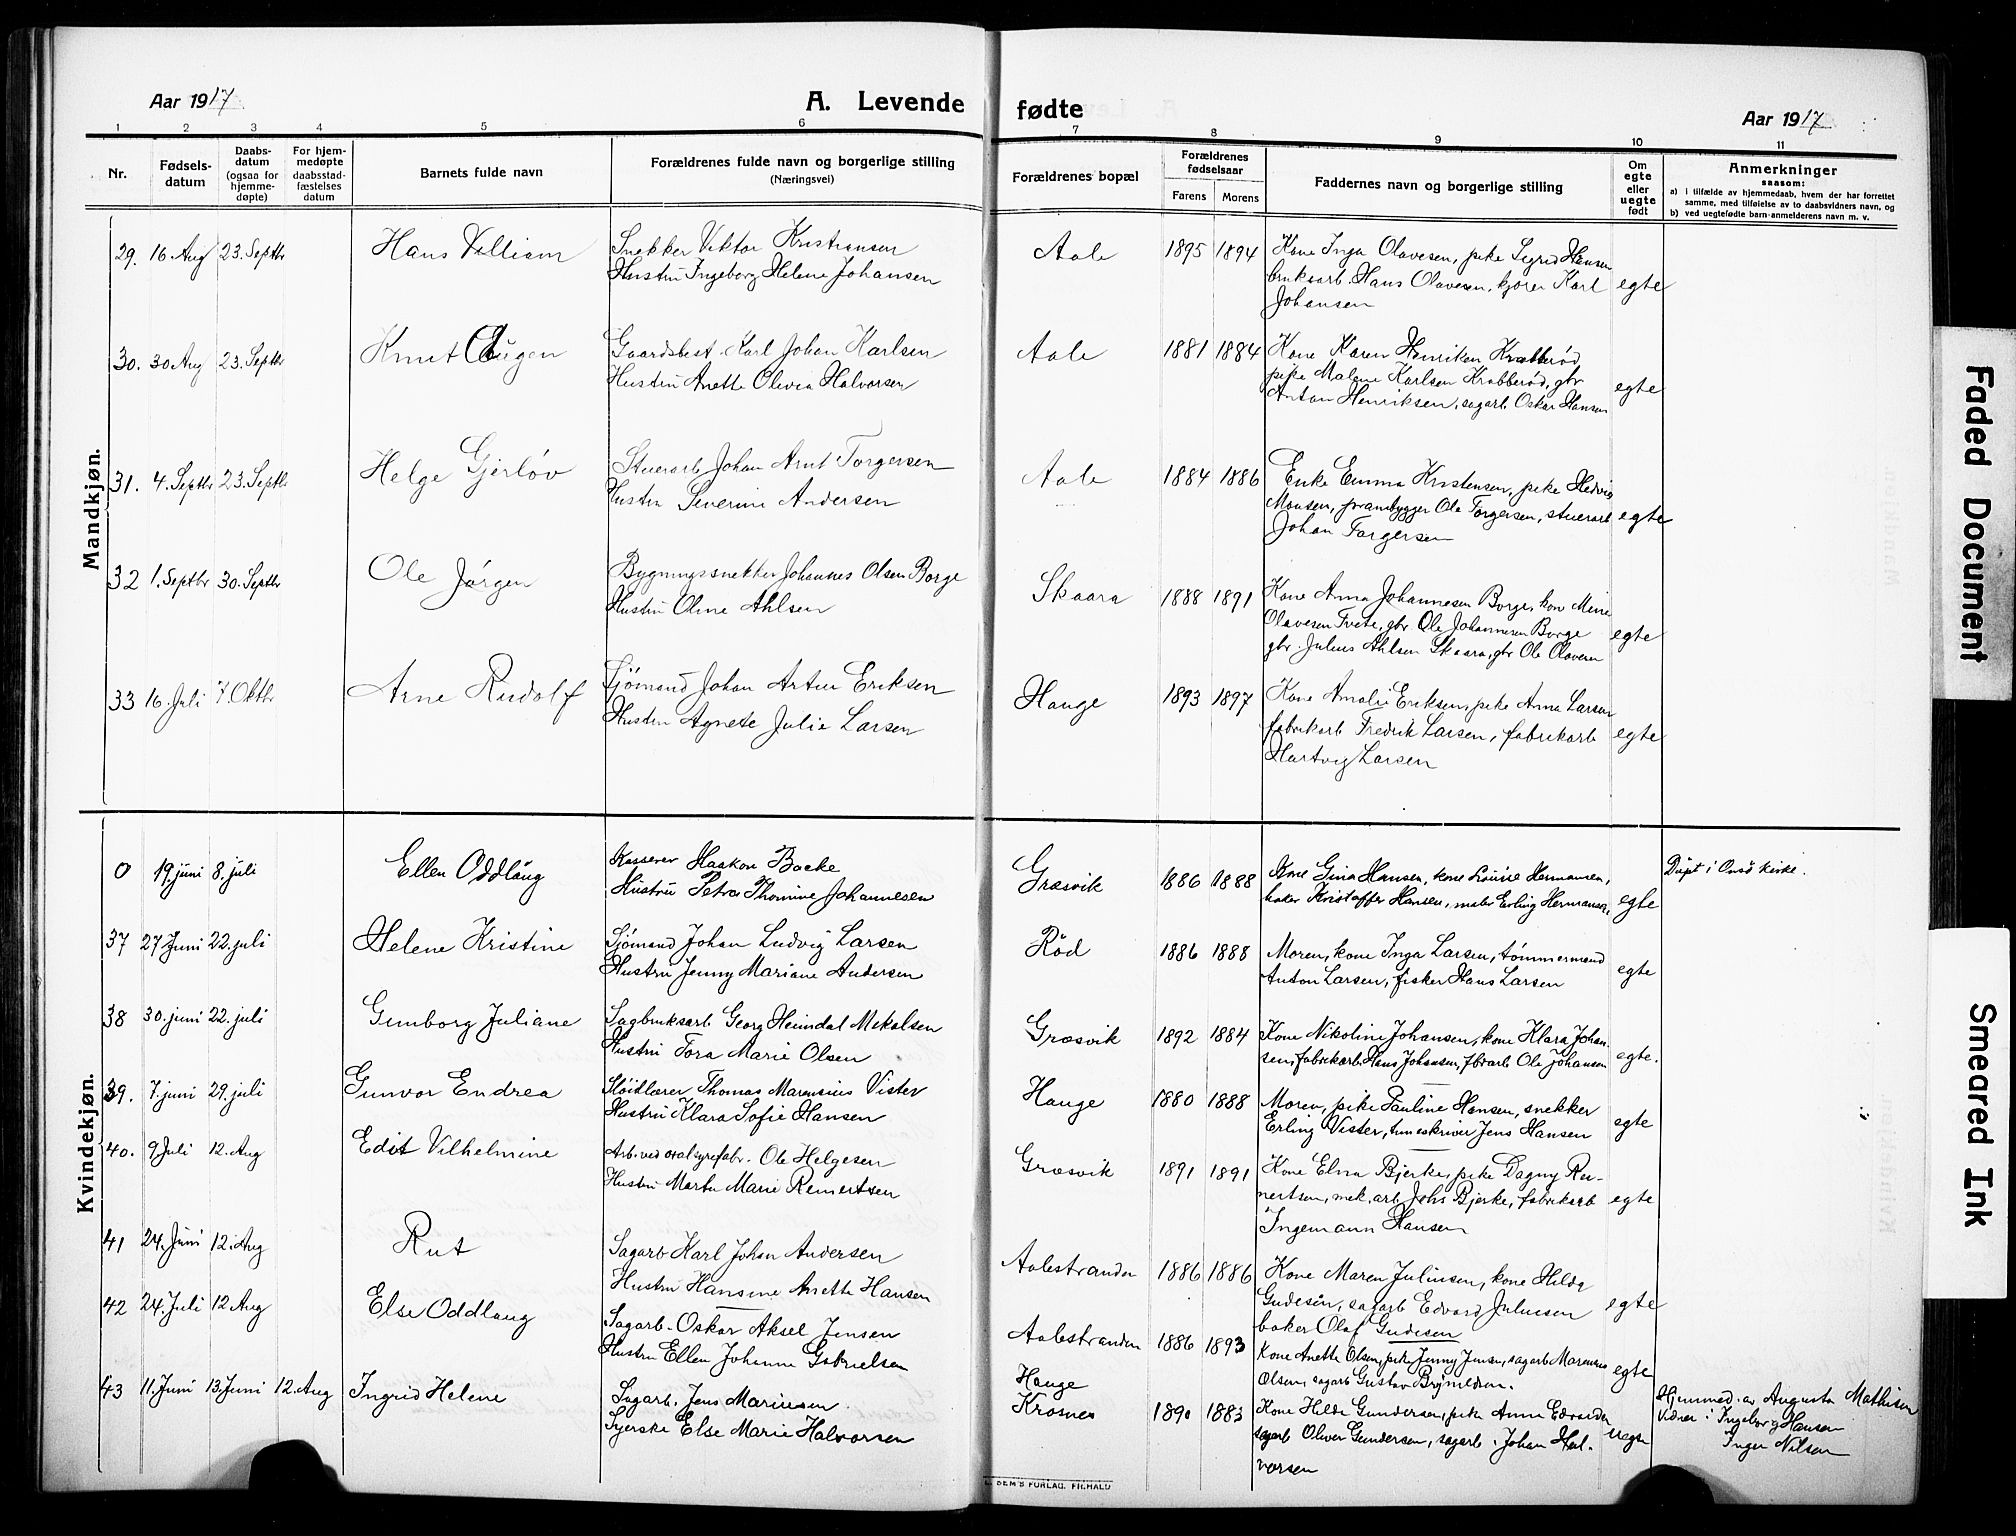 Aar 1917
A. Levende fødte
Aar 1917
1 2 3 4 5 6 7 8 9 10 11
Nr.
Fødsels-
datum
Daabs-
datum
(ogsaa for
hjemme-
døpte)
For hjem-
medøpte
daabsstad-
fæstelses
datum
Barnets fulde navn
Forældrenes fulde navn og borgerlige stilling
(Næringsvei)
Forældrenes bopæl
Forældrenes
fødselsaar
Farens Morens
Faddernes navn og borgerlige stilling
Om
egte
eller
uegte
født
Anmerkninger
saasom:
a) i tilfælde av hjemmedaab, hvem der har forrettet
samme, med tilføielse av to daabsvidners navn, og
b) ved uegtefødte barn-anmelderens navn m. v.
Mandkjøn.
29. 16 Aug 23. Septbr Hans Villiam
Snekker Viktor Kristiansen
Hustru Ingeborg Helene Johansen
Aale 1895 1894
Kone Inga Olavesen, pike Sigrid Hansen
bruksarb. Hans Olavesen, kjører Karl
Johansen
egte
30. 30 Aug 23. Septbr Knut Eugen
Gaardsbest. Karl Johan Karlsen
Hustru Anette Olivia Halvorsen
Aale 1881 1884
Kone Karen Henriksen Krabberød,
pike Malene Karlsen Krabberød, gbr
Anton Henriksen, sagarb. Oskar Hansen
egte
31. 4. Septbr 23. Septbr Helge Gjerløv
Stuerarb Johan Arnt Torgersen
Hustru Severine Andersen
Aale 1884 1886
Enke Emma Kristensen, pike Hedvig
Monsen, prambygger Ole Torgersen, stuerarb
Johan Torgersen
egte
32 1. Septbr 30. Septbr Ole Jørgen
Bygningssnekker Johannes Olsen Borge
Hustru Oline Ahlsen
Skaara 1888 1891
Kone Anna Johannesen Borge, kone Mina
Olavesen Tvete, gbr Ole Johannesen Borge
gbr. Julius Ahlsen Skaara, gbr Ole Olavesen
egte
33 16. Juli 7. Oktbr Arne Rudolf
Sjømand Johan Artur Eriksen
Hustru Agnete Julie Larsen
Hauge 1893 1897
Kone Amalie Eriksen, pike Anna Larsen
fabrikarb Fredrik Larsen, fabrikarb
Hartvig Larsen
egte
Kvindekjøn.
0 19. juni 8. juli Ellen Oddlaug
Kasserer Haakon Backe
Hustru Petra Thomine Johannesen
Græsvik 1886 1888
Kone Gina Hansen, kone Louise Hermansen,
baker Kristoffer Hansen, maler Erling Hermansen
egte
Døpt i Onsø kirke.
37 27 Juni 22. juli Helene Kristine
Sjømand Johan Ludvig Larsen
Hustru Jenny Mariane Andersen
Rød 1886 1888
Moren, kone Inga Larsen, tømmermand
Anton Larsen, fisker Hans Larsen
egte
38 30. juni 22. juli Gunborg Juliane
Sagbruksarb Georg Heimdal Mikalsen
Hustru Tora Marie Olsen
Græsvik 1892 1884
Kone Nikoline Johansen, kone Klara Johan
sen, fabrikarb. Hans Johansen, fbrarb Ole Johansen
egte.
39. 7. juni 29. juli Gunvor Endrea
Sløidlærer Thomas Marensius Vister
Hustru Klara Sofie Hansen
Hauge 1880 1888
Moren, pike Pauline Hansen, snekker
Erling Vister, tuneskriver Jens Hansen
egte
40. 9 Juli 12. Aug Edit Vilhelmine
Arb. ved oxalsyrefabr. Ole Helgesen
Hustru Marta Marie Reinertsen
Græsvik 1891 1891
Kone Elna Bjerke, pike Dagny Rei-
nertsen, mek. arb Johs Bjerke, fabrikarb
Ingemann Hansen
egte
41 24. Juni 12. Aug Rut
Sagarb Karl Johan Andersen
Hustru Hansine Anette Hansen
Aalestranden 1886 1886
Kone Maren Juliussen, kone Hilda
Gudesen, sagarb Edvard Juliussen
baker Olaf Gudesen
egte
42 24. Juli 12 Aug Else Oddlaug
Sagarb. Oskar Aksel Jensen
Hustru Ellen Johanne Gabrielsen
Aalestranden 1886 1893
Kone Anette Olsen, pike Jenny Jensen, sagarb Marensius
Olsen, sagarb Gustav Brynildsen.
egte
43 11. Juni 13. Juni 12. Aug Ingrid Helene
Sagarb. Jens Mariusen
Syerske Else Marie Halvorsen
Hauge
Krosnes 1890 1883
Kone Hilda Gundersen, pike Anna Edvardsen
sagarb Oliver Gundersen, sagarb. Johan Hal-
vorsen
uegte
Hjemmed. av Augusta Mathisen
Vidner: Ingeborg Hansen
Inger Nilsen
SEM'S FORLAG, FR.HALD
Faded Document
Smeared Ink